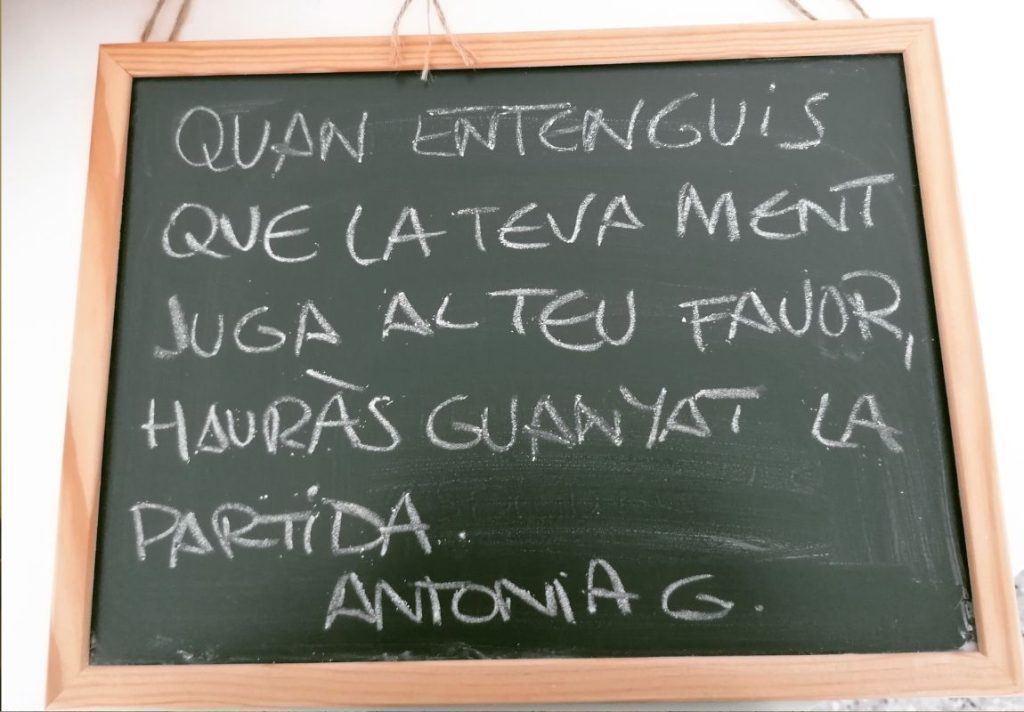 QUAN ENTENGUiS
QUE LA TEVA MENT
JUGA AL TEU FAVOR,
HAURÀS GUANYAT LA
PARTiDA.
ANTONiA G.